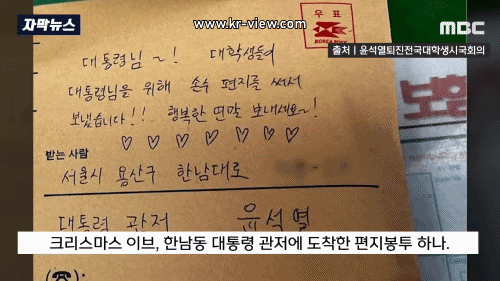 자막뉴스
www.kr-view.com
MBC
우표
KOREA POST
출처 | 윤석열퇴진전국대학생시국회의
대통령님~! 대학생들이
대통령님을 위해 손수 편지를 써서
보냈습니다!! 행복한 연말 보내세요~!
♡ ♡ ♡ ♡ ♡ ♡ ♡
보험
받는 사람
서울시 용산구 한남대로
대통령 관저 윤석열
크리스마스 이브, 한남동 대통령 관저에 도착한 편지봉투 하나.
(☎):